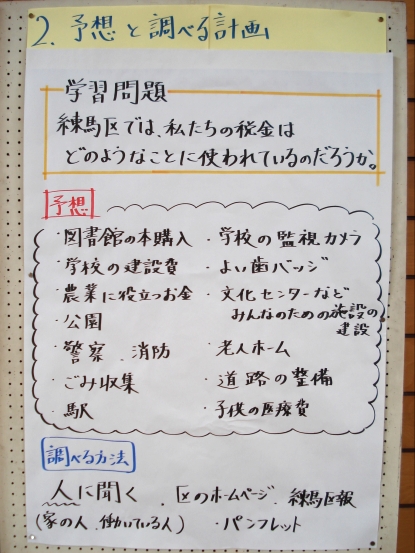 2. 予想と調べる計画
学習問題
練馬区では、私たちの税金は
どのようなことに使われているのだろうか。
予想
・図書館の本購入
・学校の建設費
・農業に役立つお金
・公園
・警察、消防
・ごみ収集
・駅
・学校の監視カメラ
・よい歯バッジ
・文化センターなど
みんなのための施設の
建設
・老人ホーム
・道路の整備
・子供の医療費
調べる方法
人に聞く ・区のホームページ 練馬区報
(家の人、働いている人) ・パンフレット